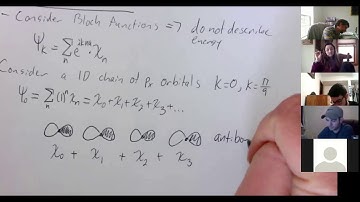 - Consider Bloch functions => do not describe
energy
Ψk = Σn e^ikna · χn
Consider a 1D chain of Px orbitals k=0, k=π/a
Ψ0 = Σn (1)^n χn = χ0+χ1+χ2+χ3+...
antibo
χ0 + χ1 + χ2 + χ3